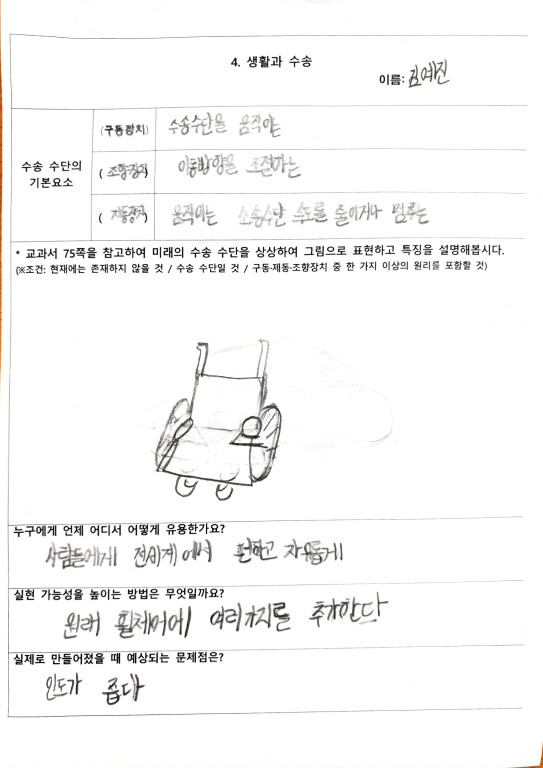 4. 생활과 수송
이름: 김예진
수송 수단의
기본요소
(구동장치) 수송수단을 움직이는
( 조향장치) 이동방향을 조절하는
( 제동장치) 움직이는 수송수단 속도를 줄이거나 멈추는
* 교과서 75쪽을 참고하여 미래의 수송 수단을 상상하여 그림으로 표현하고 특징을 설명해봅시다.
(※조건: 현재에는 존재하지 않을 것 / 수송 수단일 것 / 구동·제동·조향장치 중 한 가지 이상의 원리를 포함할 것)
누구에게 언제 어디서 어떻게 유용한가요?
사람들에게 전세계에서 편하고 자유롭게
실현 가능성을 높이는 방법은 무엇일까요?
원래 휠체어에 여러가지를 추가한다
실제로 만들어졌을 때 예상되는 문제점은?
인도가 좁다